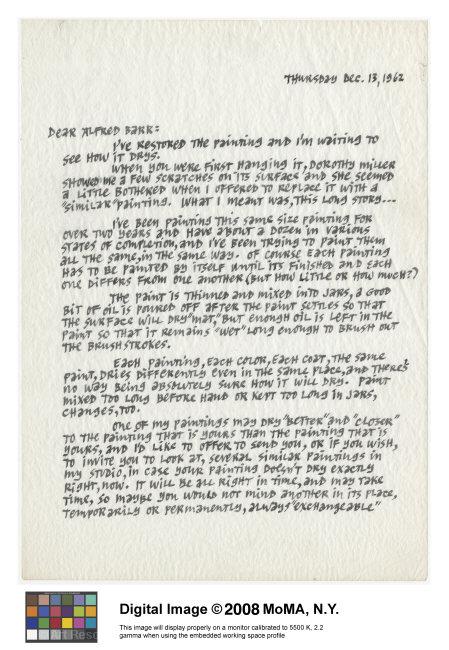 THURSDAY DEC. 13, 1962
DEAR ALFRED BARR:
I'VE RESTORED THE PAINTING AND I'M WAITING TO
SEE HOW IT DRYS.
WHEN YOU WERE FIRST HANGING IT, DOROTHY MILLER
SHOWED ME A FEW SCRATCHES ON ITS SURFACE AND SHE SEEMED
A LITTLE BOTHERED WHEN I OFFERED TO REPLACE IT WITH A
"SIMILAR" PAINTING. WHAT I MEANT WAS, THIS LONG STORY...
I'VE BEEN PAINTING THIS SAME SIZE PAINTING FOR
OVER TWO YEARS AND HAVE ABOUT A DOZEN IN VARIOUS
STATES OF COMPLETION, AND I'VE BEEN TRYING TO PAINT THEM
ALL THE SAME, IN THE SAME WAY. OF COURSE EACH PAINTING
HAS TO BE PAINTED BY ITSELF UNTIL ITS FINISHED AND EACH
ONE DIFFERS FROM ONE ANOTHER (BUT HOW LITTLE OR HOW MUCH?)
THE PAINT IS THINNED AND MIXED INTO JARS, A GOOD
BIT OF OIL IS POURED OFF AFTER THE PAINT SETTLES SO THAT
THE SURFACE WILL DRY "MAT," BUT ENOUGH OIL IS LEFT IN THE
PAINT SO THAT IT REMAINS "WET" LONG ENOUGH TO BRUSH OUT
THE BRUSHSTROKES.
EACH PAINTING, EACH COLOR, EACH COAT, THE SAME
PAINT, DRIES DIFFERENTLY EVEN IN THE SAME PLACE, AND THERE'S
NO WAY BEING ABSOLUTELY SURE HOW IT WILL DRY. PAINT
MIXED TOO LONG BEFORE HAND OR KEPT TOO LONG IN JARS,
CHANGES, TOO.
ONE OF MY PAINTINGS MAY DRY "BETTER" AND "CLOSER"
TO THE PAINTING THAT IS YOURS THAN THE PAINTING THAT IS
YOURS, AND I'D LIKE TO OFFER TO SEND YOU, OR IF YOU WISH,
TO INVITE YOU TO LOOK AT, SEVERAL SIMILAR PAINTINGS IN
MY STUDIO, IN CASE YOUR PAINTING DOESN'T DRY EXACTLY
RIGHT, NOW. IT WILL BE ALL RIGHT IN TIME, AND MAY TAKE
TIME, SO MAYBE YOU WOULD NOT MIND ANOTHER IN ITS PLACE,
TEMPORARILY OR PERMANENTLY, ALWAYS "EXCHANGEABLE"
Digital Image © 2008 MoMA, N.Y.
This image will display properly on a monitor calibrated to 5500 K, 2.2
gamma when using the embedded working space profile